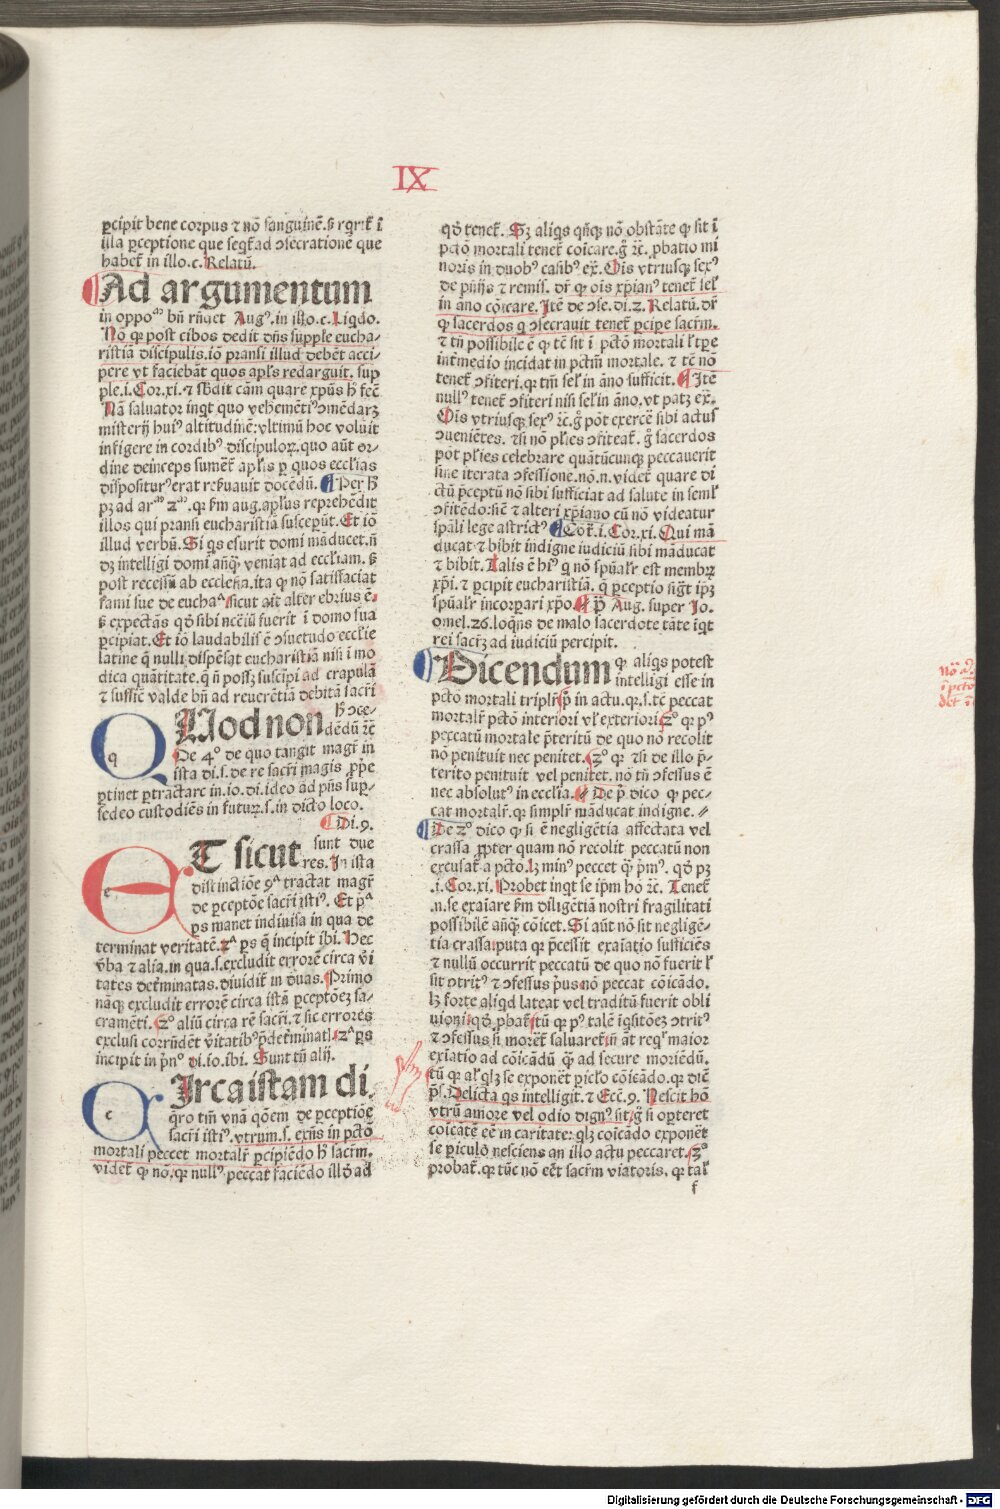 IX
ꝑcipit bene corpus ⁊ nō sanguinē. ß rꝗrit᷑ ī
illa ꝑceptione que seqt᷑ ad ↄsecrationē que
habet᷑ in illo.c. Relatū.
Ad argumentum
in oppoᵐ bñ rñdet Augꝰ. in illo.c. Liqdo.
Nō qꝛ post cibos dedit dñs supple eucha-
ristiā discipulis. iō pransi illud debēt acci-
pere vt faciebāt quos apl̄s redarguit. sup
ple.i. Cor.xi. ⁊ sbdit cām quare xpūs h̄ fec̄
Nā saluator inqt quo vehemētiꝰ ↄmēdaꝫ
misterij huiꝰ altitudinē: vltimū hoc voluit
infigere in cordibꝰ discipuloꝝ. quo aūt or-
dine deinceps sumeret᷑ apl̄is ꝑ quos eccl̄ias
dispositurꝰ erat reẜuauit docēdū. Per h̄
pꝫ ad arᵐ 2ᵐ. qꝛ ẜm aug. apl̄us reprehēdit
illos qui pransi eucharistiā susceperūt. Et iō
illud verbū. Si qs esurit domi māducet. ñ
dꝫ intelligi domi anqꝫ veniat ad eccl̄iam. ß
post recessū ab ecclesia. ita ꝙ nō satisfaciat
fami sue de euchaᵃ sicut ait alter ebrius ē.
ß expectās qd̄ sibi nccīū fuerit ī domo sua
ꝑcipiat. Et iō laudabilis ē ↄsuetudo eccl̄ie
latine ꝙ nulli dispēsat eucharistiā nisi ī mo
dica quātitate. ꝙ ñ possꝫ suscipi ad crapulā
⁊ suffic̄ valde bñ ad reuerētiā debitā sacri
QUod non h̄ ↄce-
dēdū ⁊c̄
De 4º de quo tangit magr̄ in
ista di.s. de re sacr̄i magis ꝓpe
ꝑtinet ꝑtractare in.io.di. ideo ad p̄ns suꝑ-
sedeo custodiēs in futurꝫ.s. in dicto loco.
Di.9.
ET sicut sunt due
res. In ista
distinctiōe 9ᵃ tractat magr̄
de ꝑceptōe sacr̄i istiꝰ. Et pᵃ
ps manet indiuisa in qua de
terminat veritatē. 2ᵃ ps ꝙ incipit ibi. Hec
v̄ba ⁊ alia. in qua.s. excludit errorē circa v̄i
tates det̄minatas. diuidit᷑ in duas. Primo
nāqꝫ excludit errorē circa istā ꝑceptōeꝫ sa-
cramēti. 2º aliū circa rē sacr̄i. ⁊ sic errores
exclusi corrñdēt v̄itatibꝰ p̄det̄minatꝭ. 2ᵃ ps
incipit in p̄nº di.io. ibi. Sunt tñ alij.
CIrca istam di.
q̄ro tm̄ vnā qōem de ꝑceptiōe
sacr̄i istiꝰ. vtrum.s. exñs in pctō
mortali peccet mortalr̄ ꝑcipiēdo h̄ sacr̄m.
videt᷑ ꝙ nō. qꝛ nullꝰ peccat faciēdo illđ ad
qđ tenet᷑. Sꝫ aliqs qñcqꝫ nō obstāte ꝙ sit ī
pctō mortali tenet᷑ cōicare. g̊ ⁊c̄. ꝓbatio mi
noris in duobꝰ casibꝰ ex̄. Oīs vtriusqꝫ sexꝰ
de pn̄ijs ⁊ remis. dr̄ ꝙ ois xp̄ianꝰ tenet᷑ sel̄
in āno cōicare. Itē de ↄse.di.2. Relatū. dr̄
ꝙ sacerdos ꝗ ↄsecrauit tenet᷑ ꝑcipe sacr̄m.
⁊ tñ possibile ē ꝙ tē sit ī pctō mortali l̄ tꝑe
int̄medio incidat in pctm̄ mortale. ⁊ tē nō
tenet᷑ ↄfiteri. qꝛ tm̄ sel̄ in āno sufficit. Itē
nullꝰ tenet᷑ ↄfiteri nisi sel̄ in āno. vt patꝫ ex̄.
Ois vtriusqꝫ sexꝰ ⁊c̄. g̊ pōt exercē sibi actus
ↄueniētes. ⁊si nō pl̄ies ↄfiteat᷑. g̊ sacerdos
pōt pl̄ies celebrare quātūcunqꝫ peccauerit
sine iterata ↄfessione. nō.n. videt᷑ quare di
ctū p̄ceptū nō sibi sufficiat ad salutē in seml̄
ↄfitēdo: sic̄ ⁊ alteri xp̄iano cū nō videatur
spāli lege astrictꝰ Cōt᷑.i. Cor.xi. Qui mā
ducat ⁊ bibit indigne iudiciū sibi māducat
⁊ bibit. Talis ē hīꝰ ꝗ nō spūalr̄ est membꝝ
xp̄i. ⁊ ꝑcipit eucharistiā. ꝙ ꝑceptio sigt ip̄ꝫ
spūalr̄ incorꝑari xp̄o. P̄ Aug. super Jo.
omel.26. loqns de malo sacerdote tāte īqt
rei sacr̄ꝫ ad iudiciū percipit.
Dicendum ꝙ aliqs potest
intelligi esse in
pctō mortali triplr̄. pº in actu. qꝛ.s. tē peccat
mortalr̄ pctō interiori vl̄ exteriori. 2º qꝛ pꝰ
peccatū mortale p̄teritū de quo nō recolit
nō penituit nec penitet. 2º qꝛ ⁊si de illo p̄-
terito penituit vel penitet. nō tñ ↄfessus ē
nec absolutꝰ in ecclīa. De p̄ dico ꝙ pec-
cat mortalr̄. qꝛ simplr̄ māducat indigne.
De 2º dico ꝙ si ē negligētia affectata vel
crassa ꝓpter quam nō recolit peccatū non
excusat᷑ a pctō. lꝫ minꝰ peccet ꝙ p̄mꝰ. qđ pꝫ
.i. Cor.xi. Probet inqt seip̄m hō ⁊c̄. Tenet᷑
.n. se exaīare ẜm diligētiā nostri fragilitati
possibilē anqꝫ cōicet. Si aūt nō sit negligē-
tia crassa: puta qꝛ p̄cessit exaīatio sufficiēs
⁊ nullū occurrit peccatū de quo nō fuerit l̄
sit ↄtritꝰ ⁊ ↄfessus p̄us nō peccat cōicādo.
lꝫ forte aliqd lateat vel traditū fuerit obli
uioni: qđ ꝓbat᷑. tū qꝛ pꝰ talē īqsitōeꝫ ↄtritꝰ
⁊ ↄfessus si moret᷑ saluaret᷑. ñ at̄ reqꝰ maior
exīatio ad cōicādū ꝙ ad secure moriēdū.
tū qꝛ al̄ qlꝫ se exponet ꝑiclo cōicādo. qꝛ dic̄
p̄s. Delicta qs intelligit. ⁊ Ecc̄.9. Nescit hō
vtrū amore vel odio dignꝰ sit. g̊ si oꝑteret
cōicātē eē in caritate: qlꝫ cōicādo exponēt
se ꝑiculo nesciens an illo actu peccaret. 2º
probat᷑. qꝛ tūc nō eēt sacr̄m viatoris. qꝛ tal̄
f
Digitalisierung gefördert durch die Deutsche Forschungsgemeinschaft - DFG